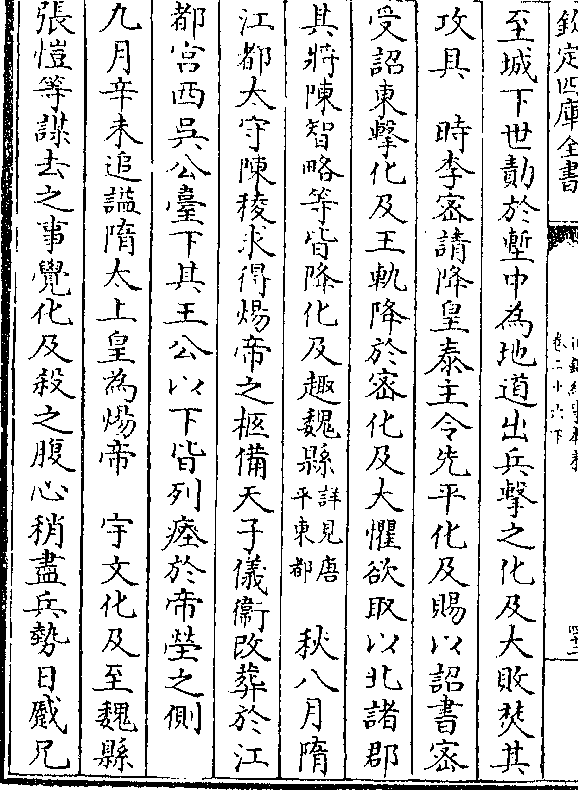 欽定四庫全書
卷二十六下
至城下世勣於塹中為地道出兵擊之化及大敗焚其
攻具　時李密請降皇泰主令先平化及賜以詔書密
受詔東擊化及王軌降於密化及大懼欲取以北諸郡
其將陳智略等皆降化及趣魏縣詳見唐平東都　秋八月隋
江都太守陳稜求得煬帝之柩備天子儀衛改葬於江
都宮西吳公臺下其王公以下皆列瘞於帝塋之側
九月辛未追諡隋太上皇為煬帝　宇文化及至魏縣
張愷等謀去之事覺化及殺之腹心稍盡兵勢日蹙兄